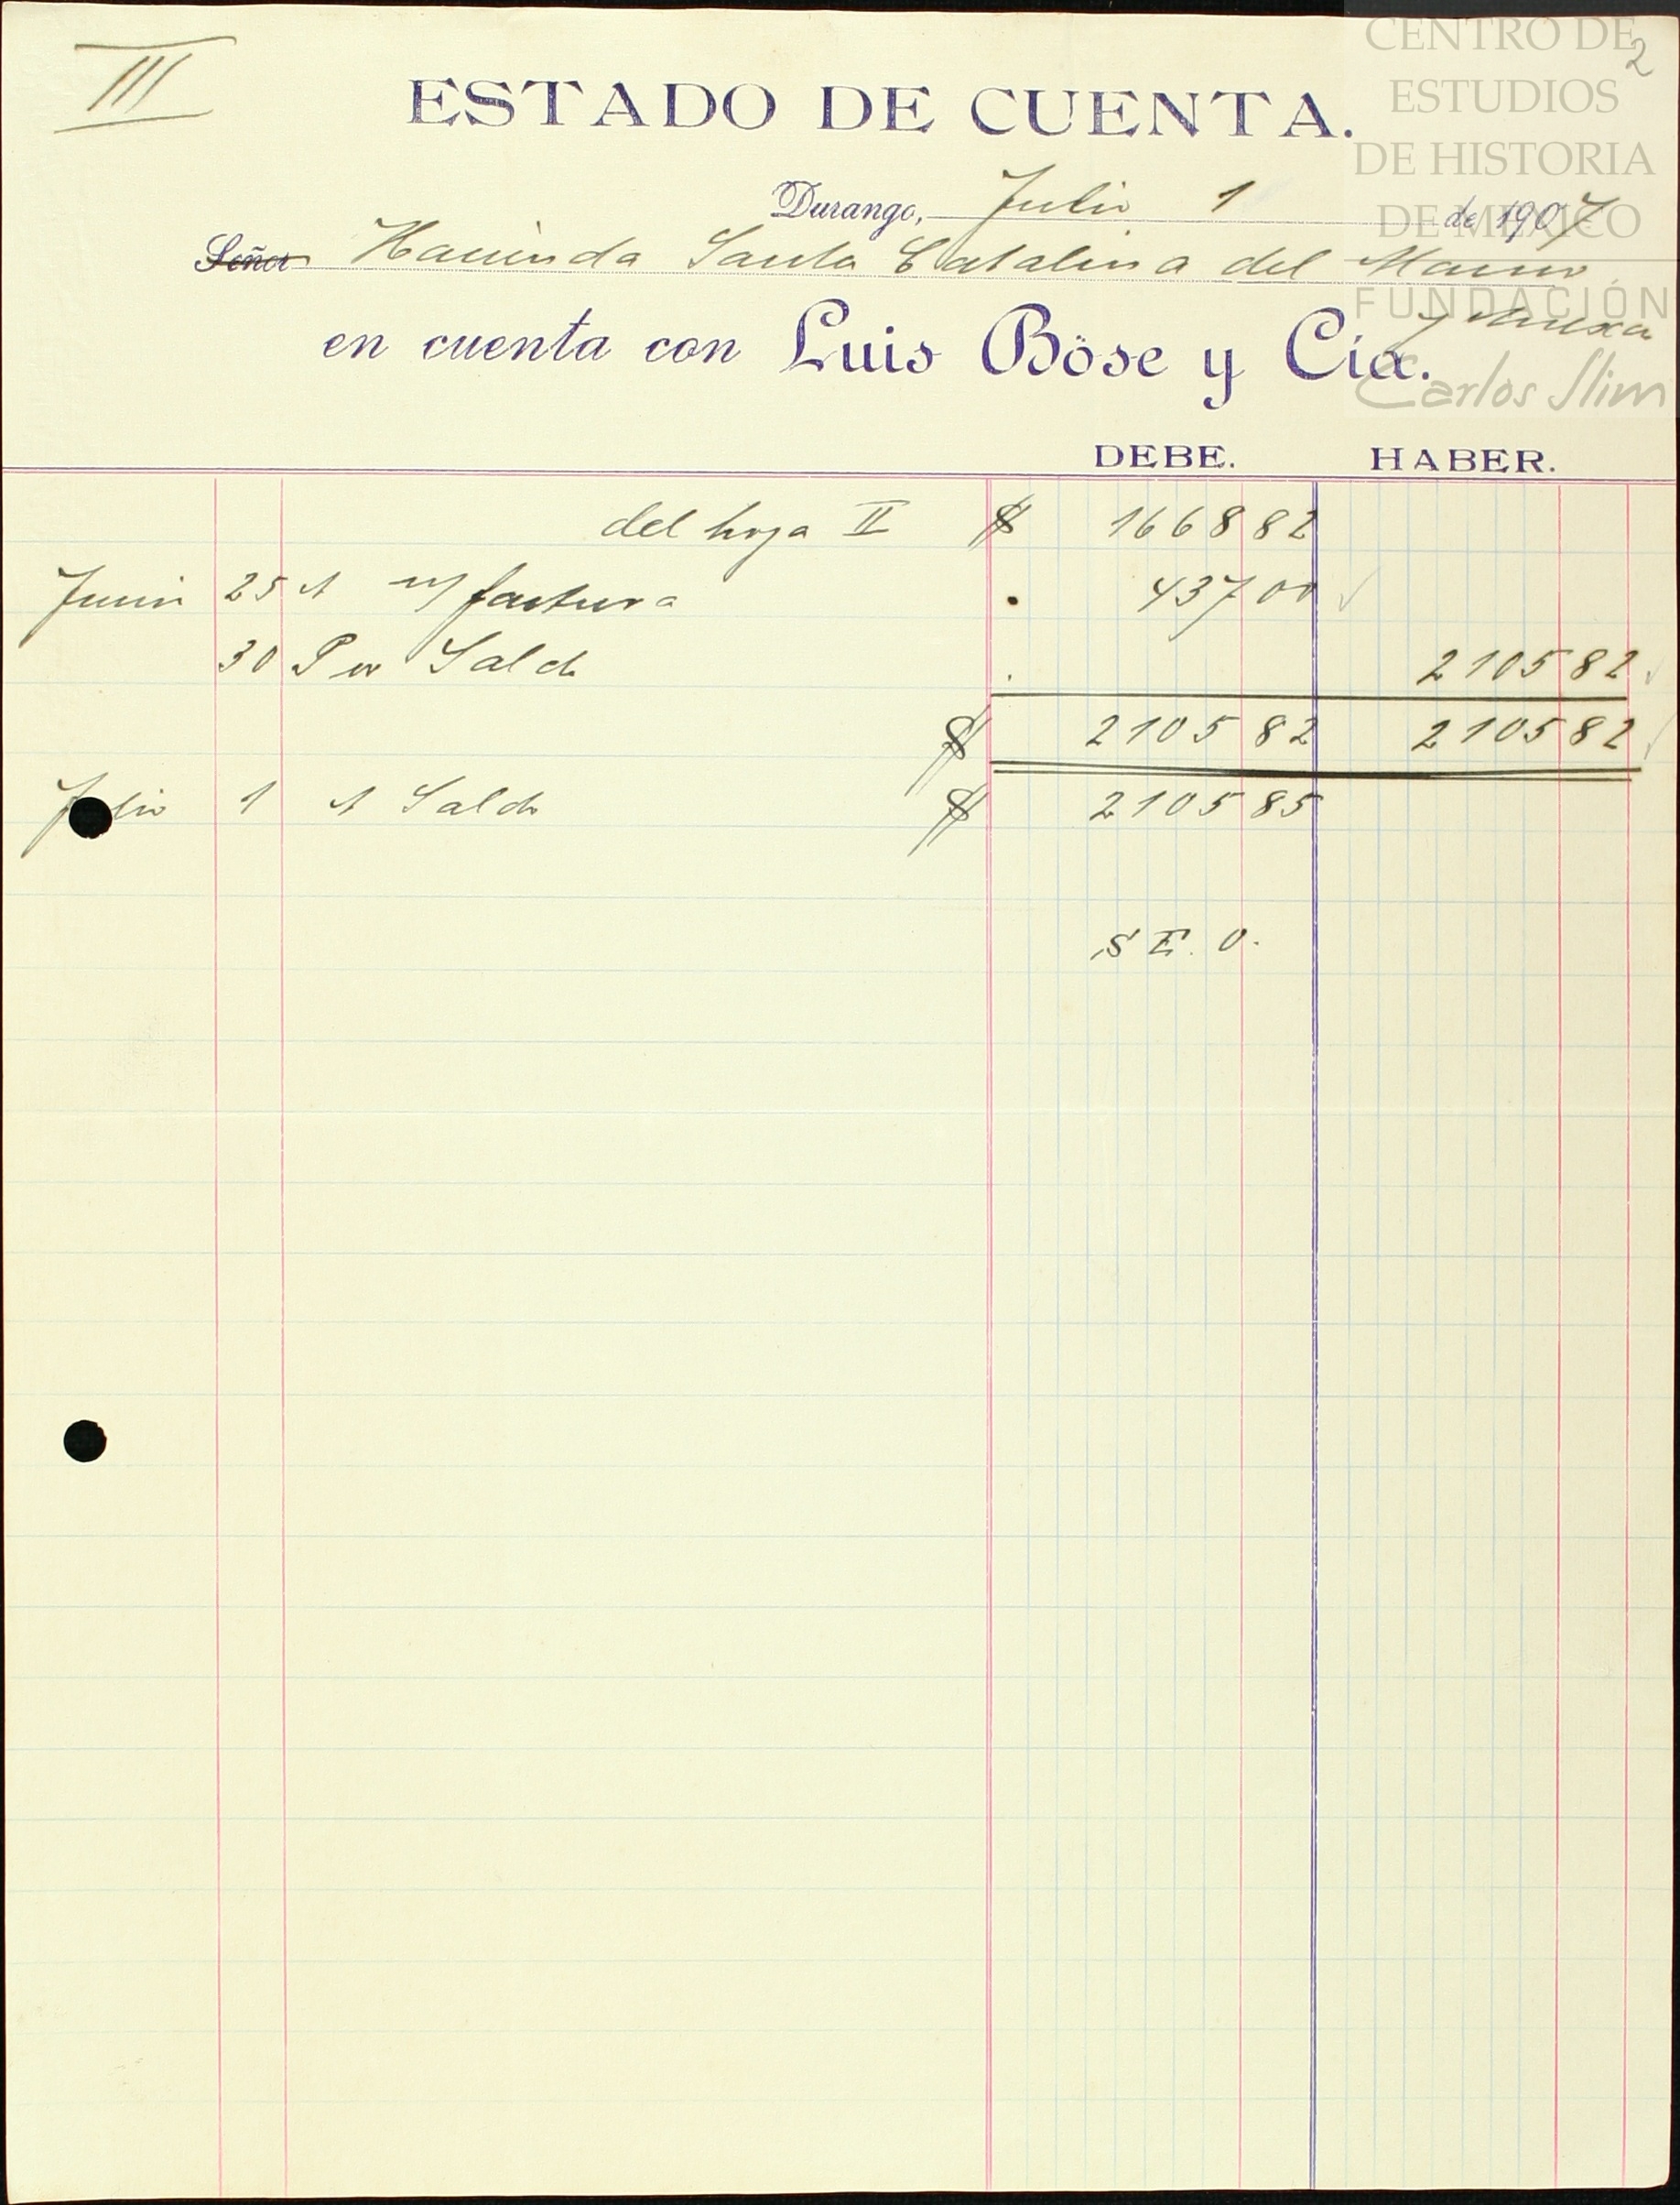 III
2
CENTRO DE
ESTUDIOS
DE HISTORIA
DE MÉXICO
FUNDACIÓN
Carlos Slim
ESTADO DE CUENTA.
Durango, Julio 1 de 1907
Señor Hacienda Santa Catalina del Alamo
y Anexa
en cuenta con Luis Böse y Cía.
DEBE. HABER.
del hoja II $ 1668 82
Junio 25 A n/ factura . 437 00
30 Por Saldo . 2105 82
$ 2105 82 2105 82
Julio 1 A Saldo $ 2105 85
S. E. O.